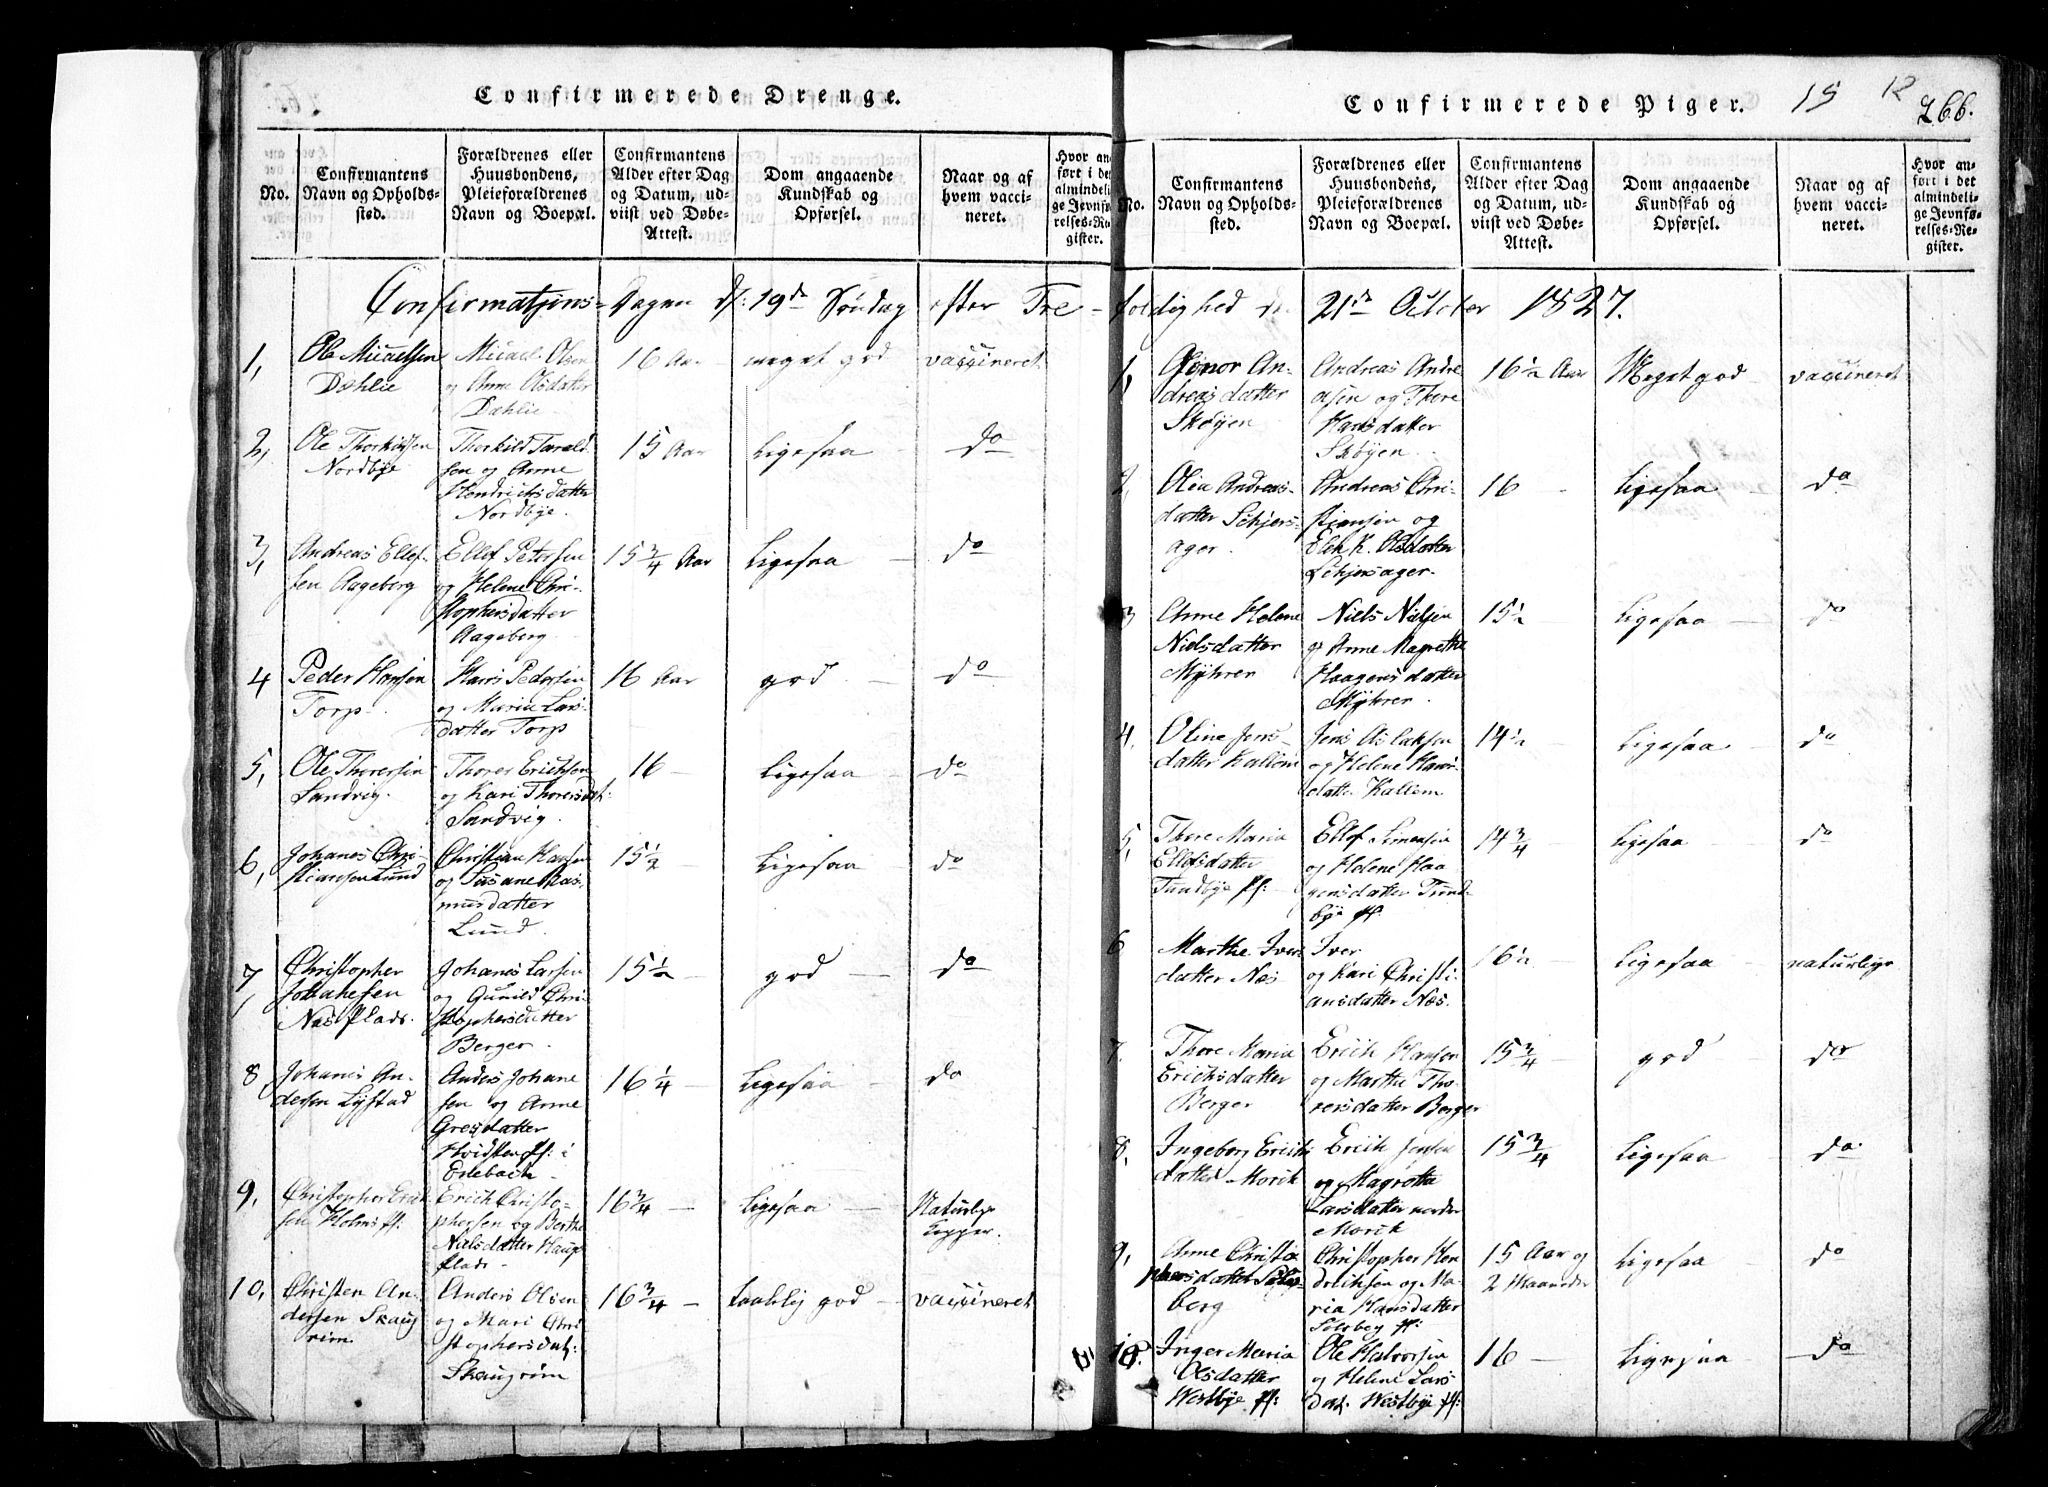 Confirmerede Drenge.
No.
Confirmantens
Navn og Opholds-
sted.
Forældrenes eller
Huusbondens,
Pleieforældrenes
Navn og Boepæl.
Confirmantens
Alder efter Dag
og Datum, ud-
viist ved Døbe-
Attest.
Dom angaaende
Kundskab og
Opførsel.
Naar og af
hvem vacci-
neret.
Hvor an-
ført i det
almindeli-
ge Jevnfø-
relses-Re-
gister.
Confirmations- Dagen 19de Søndag efter Tre-
1,
Ole Micaelsen
Dæhlie
Micael Olsen
og Anne Olsdatter
Dæhlie
16 Aar
meget god
vaccineret
2,
Ole Thorkildsen
Nordbye
Thorkild Tarald
sen og Anne
Hendrichsdatter
Nordbye.
15 Aar
Ligesaa
do
3,
Andreas Ellef-
sen Aageberg
Ellef Petersen
og Helene Chri-
stophersdatter
Aageberg
15 3/4 Aar
Ligesaa
do
4
Peder Hansen
Torp.
Hans Pedersen
og Maria Lars-
datter Torp
16 Aar
god
do
5,
Ole Thoresen
Sandvig.
Thores Erichsen
og Kari Thoresdat:
Sandvig.
16
Ligesaa
do
6,
Johanes Chri-
stiansen Lund
Christian Hansen
og Susane Ras-
musdatter
Lund.
15 1/2
Ligesaa
do
7,
Christopher
Johanesen
Næs Plads.
Johanes Larsen
og Gunild Chri-
stophersdatter
Berger.
15 1/2
god
do
8,
Johanes An-
dersen Lystad
Anders Johane
sen og Anne
Gresdatter
Hvidsten Pl: i
Enebach.
16 1/4
Ligesaa
do
9,
Christopher Erich
sen Holms Pl:
Erich Christo-
phersen og Berthe
Nielsdatter Haug
Plads.
16 3/4
Ligesaa
Naturlige
Kopper.
10,
Christen An-
dersen Skaug
rim.
Anders Olsen
og Mari Chri
stophersdat:
Skaugrim
16 3/4
taalelig god
vaccineret
Confirmerede Piger.
15
12
266.
No.
Confirmantens
Navn og Opholds-
sted.
Forældrenes eller
Huusbondens,
Pleieforældrenes
Navn og Boepæl.
Confirmantens
Alder efter Dag
og Datum, ud-
viist ved Døbe-
Attest.
Dom angaaende
Kundskab og
Opførsel.
Naar og af
hvem vacci-
neret.
Hvor an-
ført i det
almindeli-
ge Jevnfø-
relses-Re-
gister.
foldighed d. 21de October 1827.
1,
Gonor An-
dreasdatter
Skøyen
Andreas Andre
asen og Thore
Hansdatter
Skøyen.
16 1/2 Aar
Meget god
vaccineret
2,
Olea Andreas-
datter Schjers-
ager.
Andreas Chri-
stiansen og
Olsdatter
Schjersager.
16
Ligesaa
do
3
Anne Helene
Nielsdatter
Myhrer
Niels Nielsen
og Anne Magrethe
Haagensdatter
Myhrer.
15 1/2
Ligesaa
do
4,
Oline Jens
datter Kallem
Jens Aslaksen
og Helene Hans
datter Kallem
14 1/2
Ligesaa
do
5,
Thore Maria
Ellefsdatter
Tundbye Pl:
Ellef Simensen
og Helene Haa
gensdatter Tund-
bye Pl.
14 3/4
Ligesaa
do
6
Marthe Ivers
datter Næs
Iver
og Kari Christi
ansdatter Næs.
16 1/2
Ligesaa
naturlige
7.
Thore Maria
Erichsdatter
Berger
Erich Hansen
og Marthe Tho-
rersdatter Berger
15 3/4
god
do
8,
Ingeborg Erichs
datter Morik
Erich Jensen
og Magrette
Larsdatter norder
Morik
15 3/4
Ligesaa
do.
9,
Anne Christo
phersdatter
berg
Christopher Hen
drichsen og Ma-
ria Hansdatter
Pl:
15 Aar og
2 Maaneder
Ligesaa
do
10.
Inger Maria
Olsdatter
Westbye Pl:
Ole Halvorsen
og Helene Lars
dat. Westbye Pl:
16
Ligesaa
do